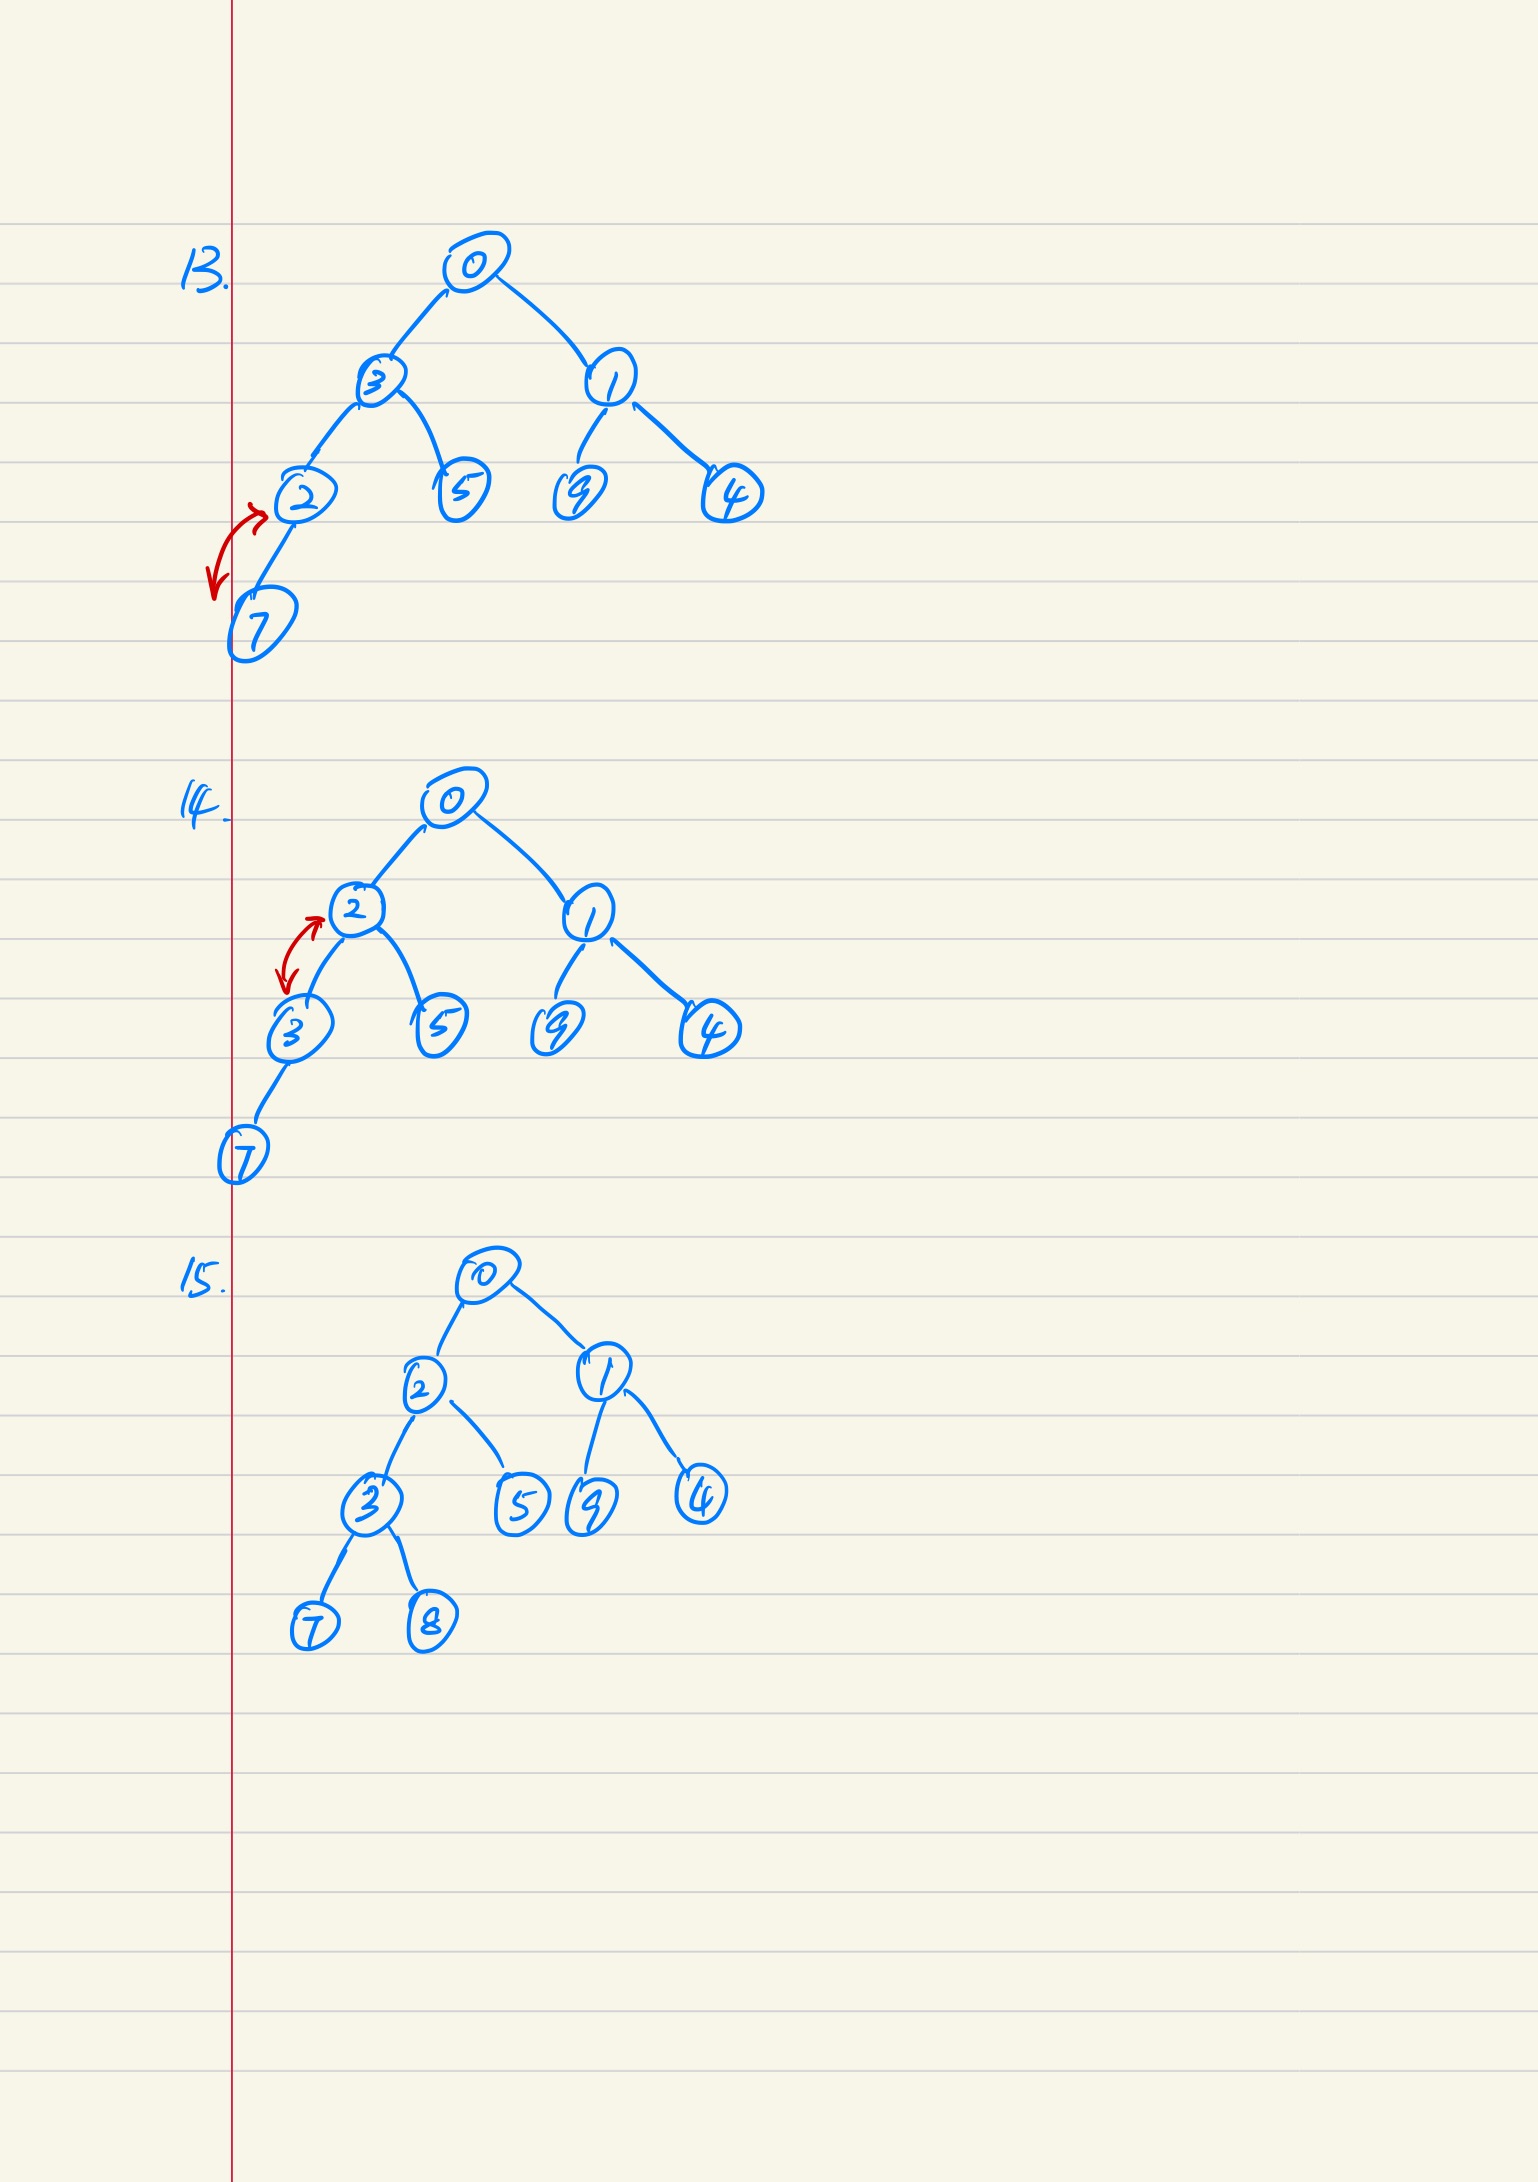 13.
0
3 1
2 5 9 4
7
14.
0
2 1
3 5 9 4
7
15.
0
2 1
3 5 9 4
7 8